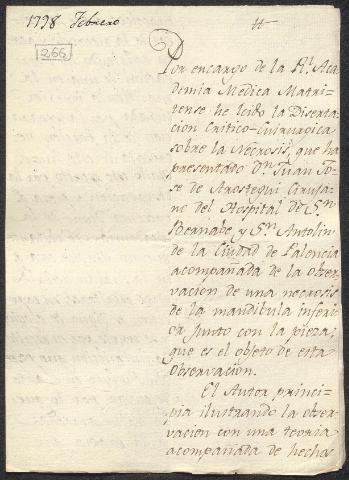 1798 Febrero
266
Por encargo de la Rl. Aca=
demia Medica Matri=
tense he leido la Diserta=
cion Critico-Quirurgica
sobre la Necrosis, que ha
presentado Dn. Juan Jo=
se de Arostegui Ciruja=
no del Hospital de Sn.
Bernabe, y Sn. Antolin
de la Ciudad de Palencia
acompañada de la obser=
vacion de una necrosis
de la mandibula inferi=
or junto con la pieza,
que es el objeto de esta
observacion.
El Autor princi=
pia ilustrando la obser=
vacion con una teoria
acompañada de hechos